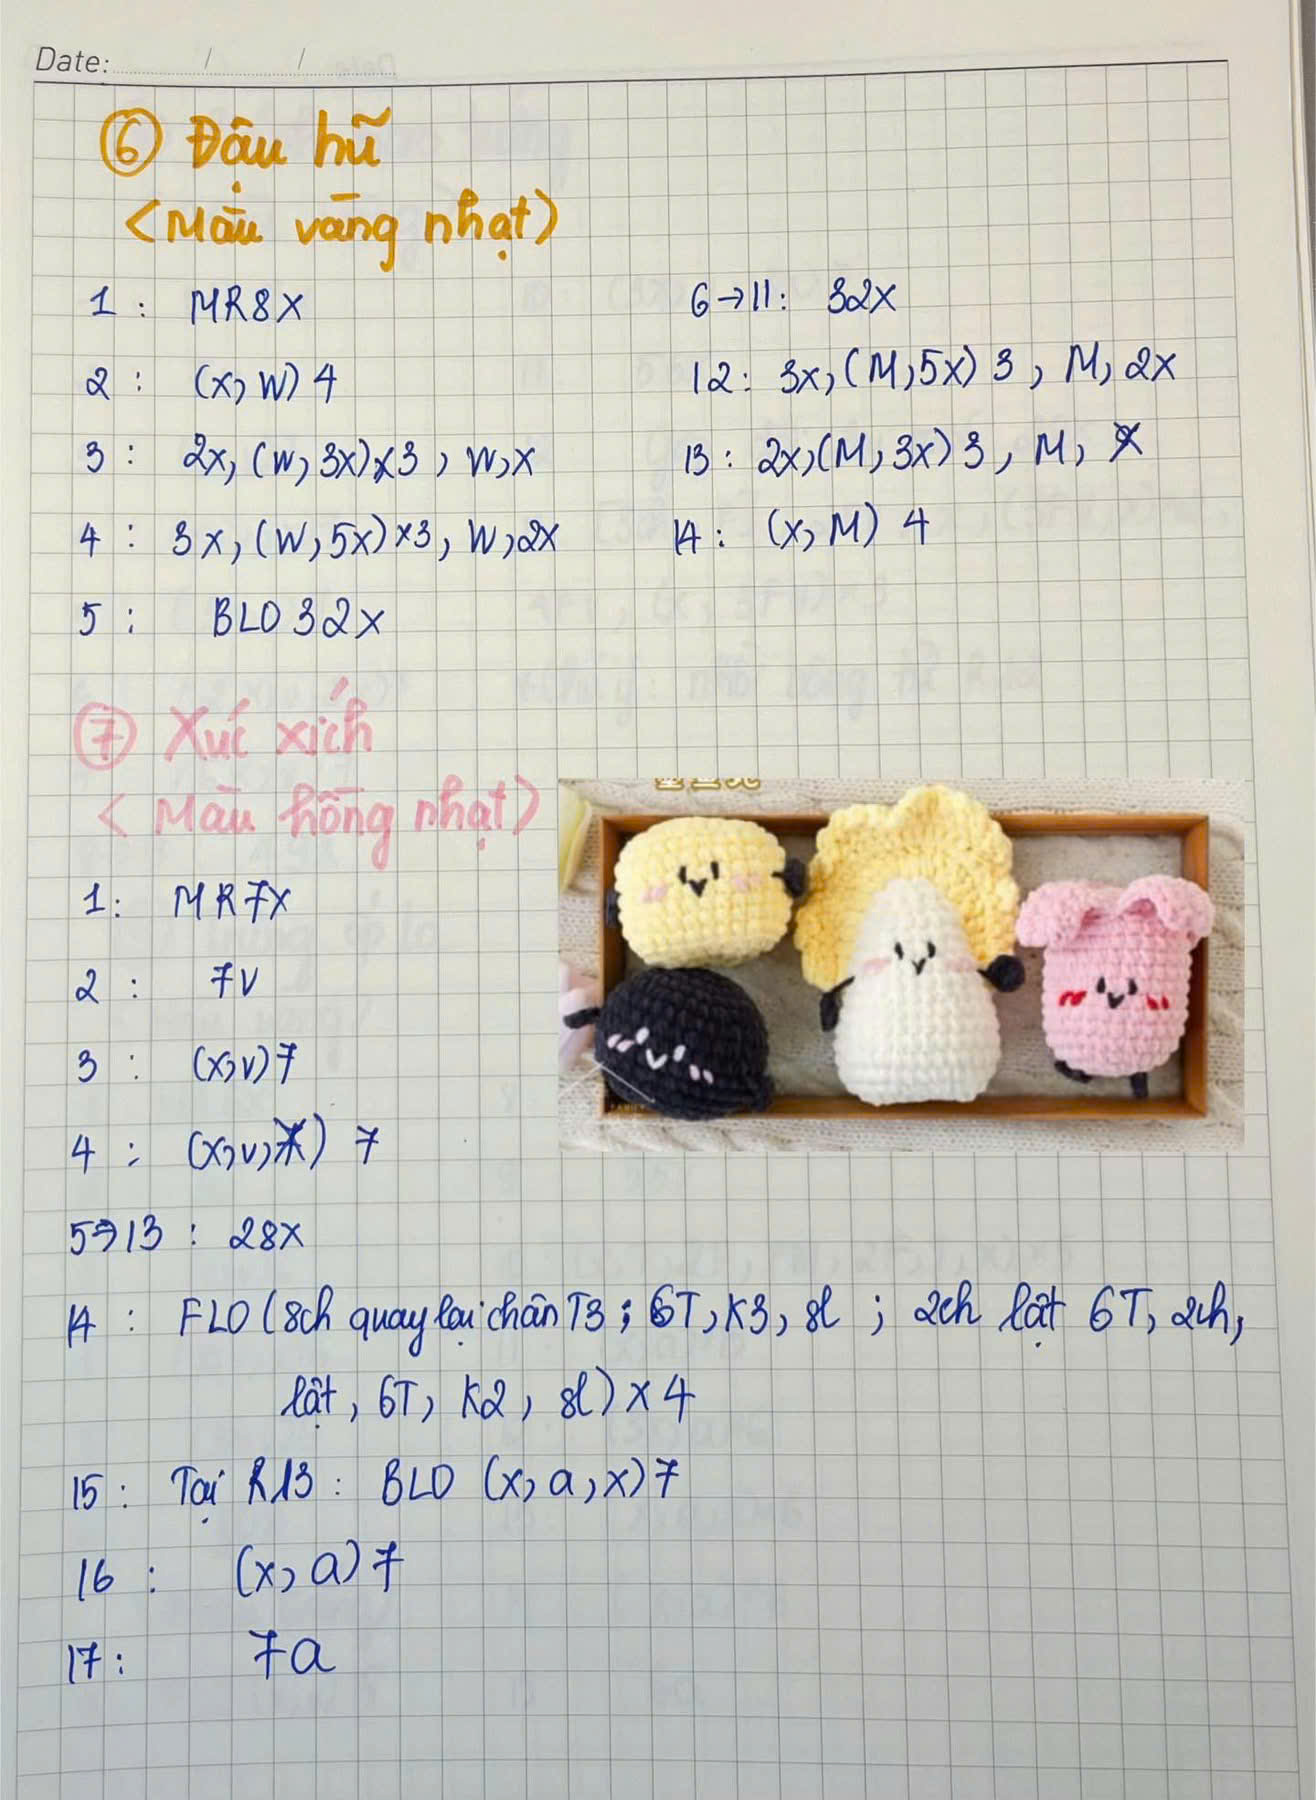 Date: / /
⑥ Đậu hũ
<Màu vàng nhạt>
1 : MR8X
2 : (x, W) 4
3 : 2x, (W, 3x)x3, W, x
4 : 3x, (W, 5x)x3, W, 2x
5 : BLO 32x
6→11: 32x
12: 3x, (M, 5x) 3, M, 2x
13: 2x, (M, 3x) 3, M, x
14: (x, M) 4
⑦ Xúc xích
<Màu hồng nhạt>
1: MR7X
2 : 7V
3 : (x, v)7
4 : (x, v, x) 7
5→13 : 28x
14 : FLO (8ch quay lại chân T3; 6T, K3, sl ; 2ch lật 6T, 2ch,
lật, 6T, K2, sl) x 4
15 : Tại R13 : BLO (x, a, x)7
16 : (x, a) 7
17 : 7a